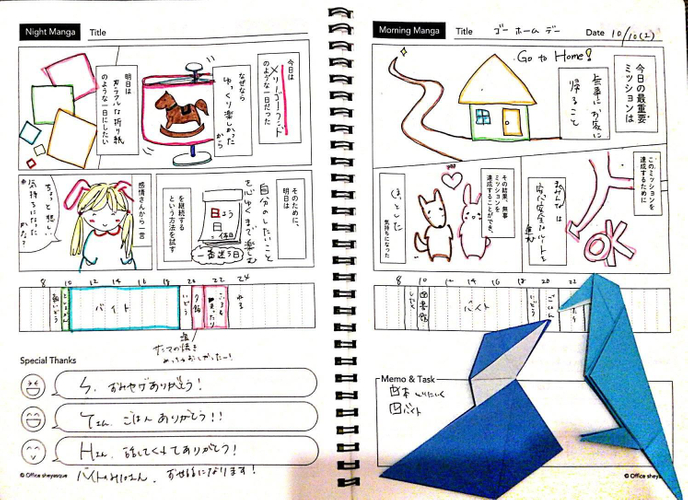 Night Manga
Title
今日は
メリーゴーランド
のような一日だった
なぜなら
ゆっくり楽しかった
から
明日は
カラフルな折り紙
のような一日にしたい
そのために、
明日は
自分のしたいこと
を心ゆくまで楽しむ
を継続する
という方法を試す
感情さんから一言
ちょっと悲しい
気持ちになった
かな?
8 10 12 14 16 18 20 22 24
バイト
いどう
夕飯
Special Thanks
おみやげありがとう!
ごはん ありがとう!!
Hさん、話してくれてありがとう!
お世話になります!
© Office sheyazue
Morning Manga
Title ゴー ホーム デー
Date 10/10(2)
Go to Home!
今日の最重要
ミッションは
無事にお家に
帰ること
このミッションを
達成するために
は
OK
その結果、無事
ミッションを
達成することができ、
ほっとした
気持ちになった
8 10 12 14 16 18 20 22
図書館
バイト
いどう
ごはん
Memo & Task
本
バイト